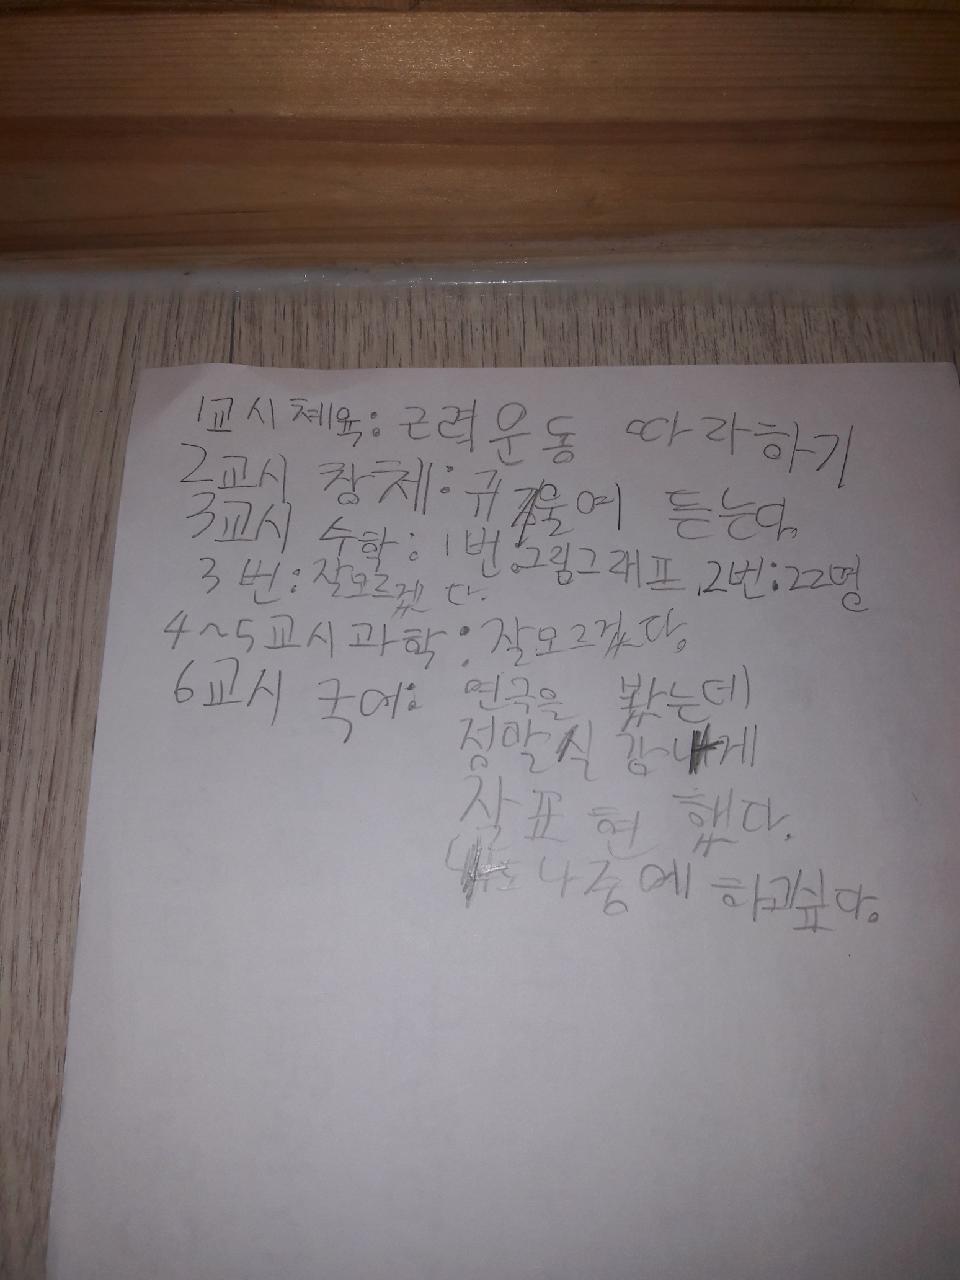 1교시 체육: 근력 운동 따라하기
2교시 창체: 규울여 듣는다.
3교시 수학: 1번:그림그래프, 2번:22명
3번: 잘모르겠다.
4~5교시 과학: 잘모르겠다.
6교시 국어: 연극을 봤는데
정말 실감나게
잘 표현했다.
나중에 하고싶다.